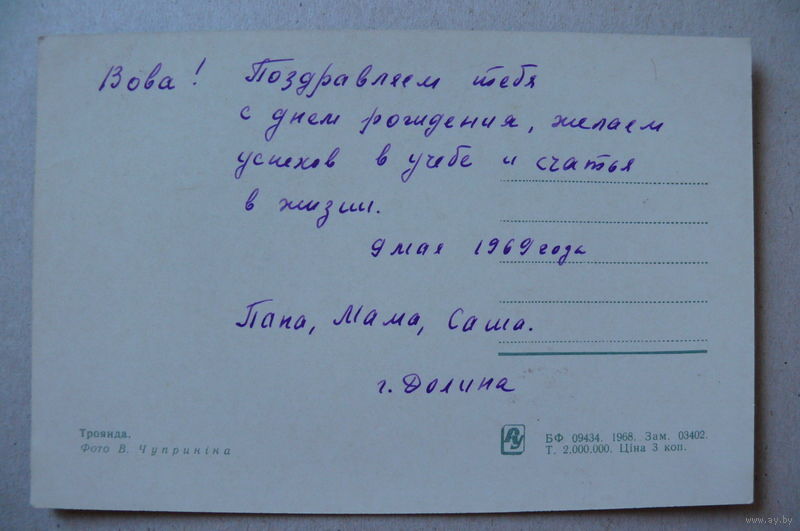 Вова! Поздравляем тебя
с днем рождения, желаем
успехов в учебе и счастья
в жизни.
9 мая 1969 года
Папа, Мама, Саша.
г. Долина
Троянда.
Фото В. Чуприніна
БФ 09434. 1968. Зам. 03402.
Т. 2,000,000. Ціна 3 коп.
www.ay.by